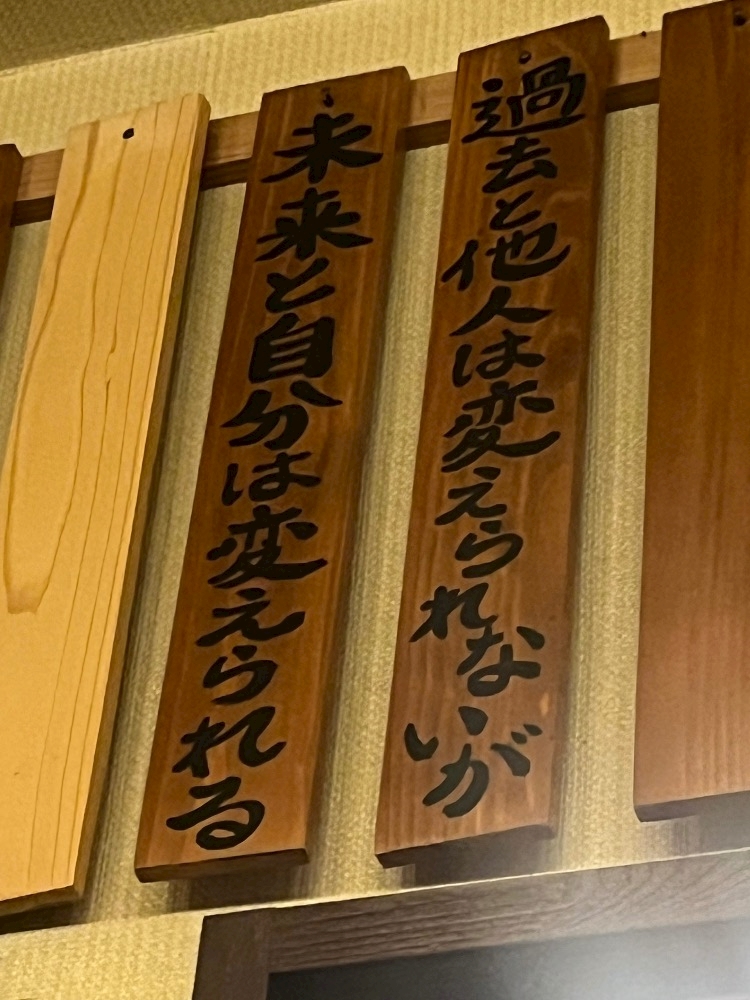 過去と他人は変えられないが
未来と自分は変えられる